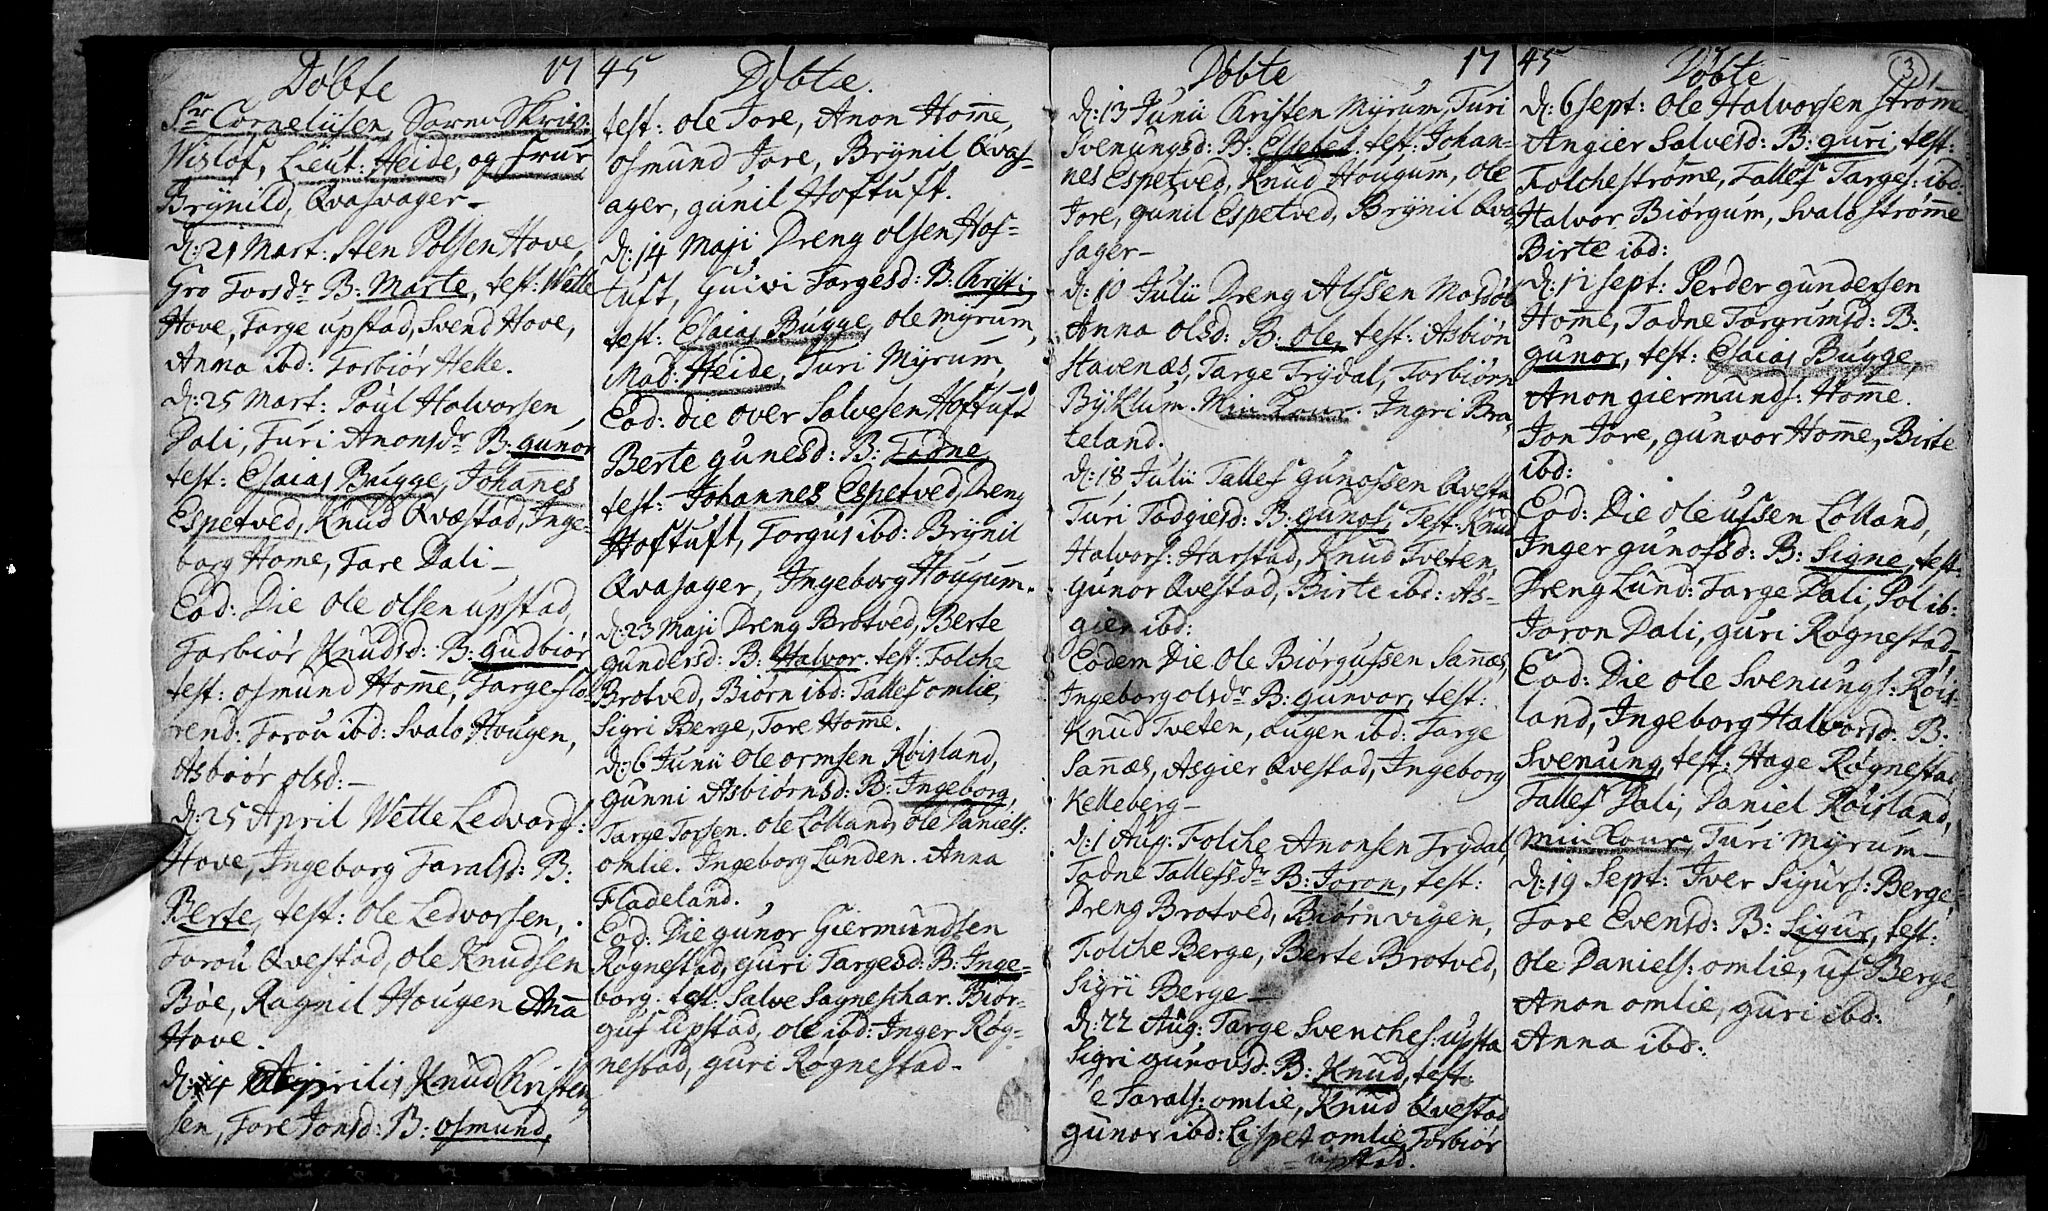 Døbte 17
Sr Corneliisen, Sorenskriv:
Wisløf, Lieut: Heide, og Frur
Brÿnild, Qvasvager
d: 21 Mart: Sten Polsen Hove,
Gro Torsdr B: Marte, test: Wette
Hove, Targe upstad, Svend Hove,
Anna ibd: Torbiør Helle.
d: 25 Mart: Poul Halvorsen
Dali, Turi Anonsdr B: gunor
test: Esaias Bugge, Johañes
Espetved, Knud Qvæstad, Inge-
borg Home, Tare Dali
Eod: Die Ole Olsen upstad
Torbiør Knudsd: B: gudbiør
test: osmund Hom̃e, Targe Flo-
rend: Torou ibd: Svalo Hougen,
Asbiør olsd:
d: 25 April Wette Ledvors:
Hove, Ingeborg Taralsd: B:
Berte, test: Ole Ledvorsen,
Torou Qvestad, Ole Knudsen
Bøe, Ragnil Hougen Añа
Hove.
d: 4 Aprilis Knud Christen-
sen, Tore Jonsd: B: osmund,
45 Døbte.
test: ole Jore, Anon Hom̃e,
osmund Jore, Brÿnil Qvas-
ager, gunil Hoftuft.
d: 14 Maji Dreng olsen Hof-
tuft, Guivi Targesd: B: Christi,
test: Esaias Bugge, ole mÿrum,
Mad: Heide, Turi Mÿrum,
Eod: die over Salvesen Hoftuft
Berte gunesd: B: Tadne
test: Johannes Espetved, Dreng
Hoftuft, Torgus ibd: Brÿnil
Qvasager, Ingeborg Hougum.
d: 23 Maji Dreng Brotved, Berte
gundersd: B: Halvor. test: Folche
Brotved, Biørn ibd: Tallef omlie,
Sigri Berge, Tore Hom̃e.
d: 6 Junii Ole ormsen Røisland,
Gunni Asbiørnsd: B: Ingeborg,
Targe Torsen. Ole Lolland, Ole Daniels:
omlie. Ingeborg Lunden. Anna
Fladeland.
Eod: Die gunor Giermundsen
Rognestad, guri Targesd: B: Inge-
borg. test: Salve Sagneskar. Biør-
guf upstad, ole ibd: Inger Røg-
nestad, guri Rognestad
Døbte 17
d: 13 Junii Christen Mÿrum, Turi
Svenungsd: B: Elsebet. test: Johan-
nes Espetved, Knud Hougum, Ole
Jore, gunil Espetved, Brÿnil Qva-
sager
d: 10 Julii Dreng Alfsen Mosdøl
Anna olsd: B: Ole, test: Asbiøn
Stavenæs, Targe Frÿdal, Torbiørn
Bÿklum. Min Kour. Ingri Bra-
teland.
d: 18 Julii Tallef gunofsen Qvestad
Turi Tadgiesd: B: gunof, Test: Knud
Halvors: Harstad, Knud Tveten,
gunor Qvestad, Birte ibd: As-
gier ibd:
Eodem Die Ole Biørgufsen Sañæs,
Ingeborg olsdr B: gunvor, test:
Knud Tveten, ougen ibd: Targe
Sañæs, Asgier Qvestad, Ingeborg
Kelleberg
d: 1 Aug: Folche Anonsen Frÿdal,
Tadne Tallefsdr B: Joron, test:
Dreng Brotved, Biørn vigen,
Folche Berge, Berte Brotved,
Sigri Berge
d: 22 Aug: Targe Svenches: upsta
Sigri gunovsd: B: Knud, test:
e Tarals: omlie, Knud Qvestad
gunor ibd: Lispet omlie, Torbiør
upstad.
45 Døbte 3
d: 6 sept: Ole Halvorsen Strøm̃e
Angier Salvesd: B: guri, test:
Folchestrøme, Tallef Targes: ibd:
Halvor Biørgum, Svalo strøm̃e
Birte ibd:
d: 12 sept: Perder gundersen
Hom̃e, Tadne Torgrimsd: B:
gunor, test: Esaias Bugge,
Anon giermunds: Hom̃e.
Jon Jore, gunvor Hom̃e, Birte
ibd:
Eod: Die ole ufsen Lolland,
Inger gunofsd: B: Signe, test:
Dreng Lund: Targe Dali, Pol ib:
Joron Dali, guri Rognestad
Eod: Die Ole Svenungs: Røis-
land, Ingeborg Halvorsd: B:
Svenung, test: Hage Røgnestad
Tallef Dali, Daniel Røisland,
Min Kour, Turi Mÿrum
d: 19 Sept: Iver Sigurs: Berge,
Tore Evensd: B: Sigur, test:
Ole Daniels: omlie, uf Berge,
Anon omlie, guri ibd:
Anna ibd: